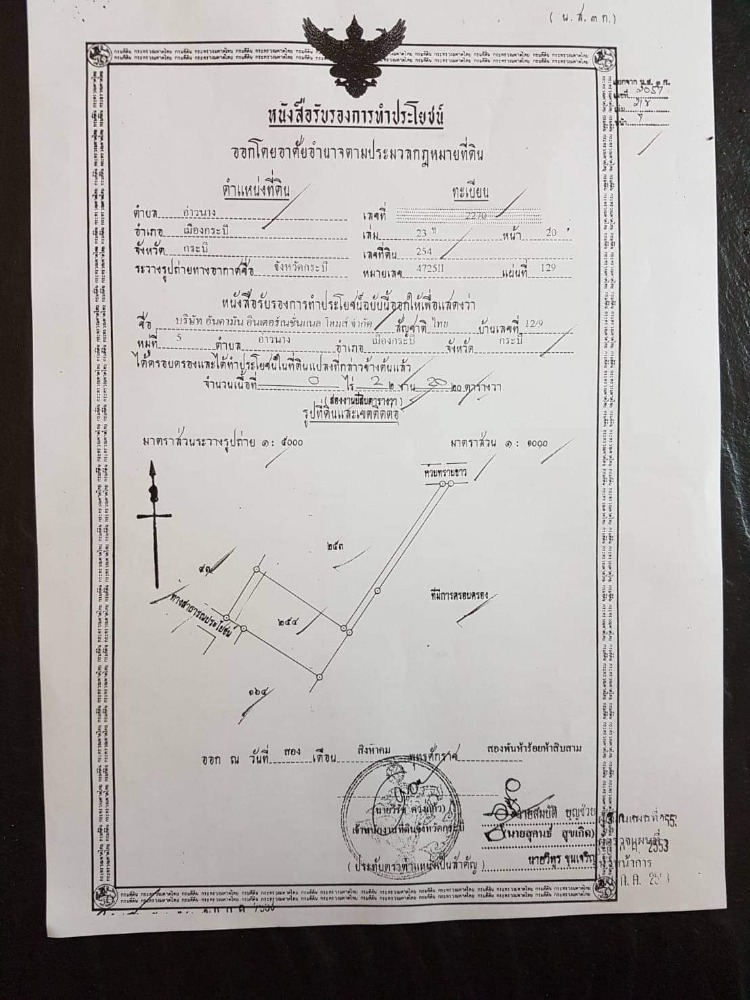 ( น.ส.๓ ก.)
หนังสือรับรองการทำประโยชน์
ออกโดยอาศัยอำนาจตามประมวลกฎหมายที่ดิน
ออกจาก น.ส. ๓ ก.
เลขที่
เล่ม
หน้า
ตำแหน่งที่ดิน
ทะเบียน
ตำบล อ่าวนาง เลขที่ 2270
อำเภอ เมืองกระบี่ เล่ม 23 หน้า 20
จังหวัด กระบี่ เลขที่ดิน 254
ระวางรูปถ่ายทางอากาศชื่อ จังหวัดกระบี่ หมายเลข 4725II แผ่นที่ 129
หนังสือรับรองการทำประโยชน์ฉบับนี้ออกให้เพื่อแสดงว่า
ชื่อ บริษัท อันดามัน อินเตอร์เนชั่นแนล โฮมส์ จำกัด สัญชาติ ไทย บ้านเลขที่ 12/9
หมู่ที่ 5 ตำบล อ่าวนาง อำเภอ เมืองกระบี่ จังหวัด กระบี่
ได้ครอบครองและได้ทำประโยชน์ในที่ดินแปลงที่กล่าวข้างต้นแล้ว
จำนวนเนื้อที่ 0 ไร่ 2 ๒ งาน 20 ๒๐ ตารางวา
(สองงานยี่สิบตารางวา)
รูปที่ดินและเขตติดต่อ
มาตราส่วนระวางรูปถ่าย ๑ : ๕๐๐๐ มาตราส่วน ๑ : ๑๐๐๐
ห้วยทรายขาว
๒๕๓
๙๓
ที่มีการครอบครอง
ทางสาธารณประโยชน์
๒๕๔
๑๖๔
ออก ณ วันที่ สอง เดือน สิงหาคม พุทธศักราช สองพันห้าร้อยห้าสิบสาม
นายสมบัติ บุญช่วย
เจ้าพนักงานที่ดินจังหวัดกระบี่
(นายสุคนธ์ สุขเกิด)
2553
( ประทับตราตำแหน่งเป็นสำคัญ )